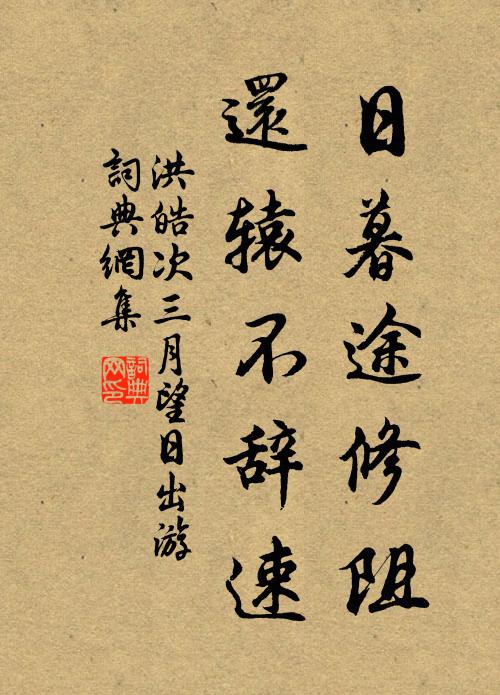 日暮途修阻
還辕不辞速
洪皓次三月望日出游
詞典網集
詞典网印